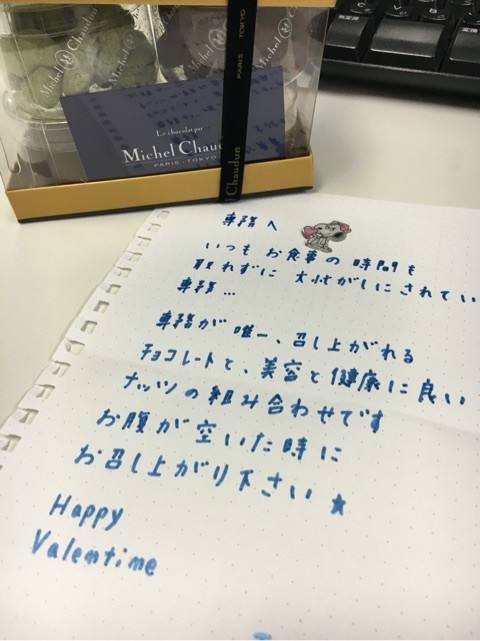 Michel Chaudun
Michel Chaudun
PARIS TOKYO
Le chocolat par
Michel Chaudun
PARIS・TOKYO
Chaudun
無変換
変換
専務へ
いつも お食事の 時間も
取れずに 大忙がしにされてい
専務…
専務が 唯一、召し上がれる
チョコレートと、美容と健康に良い
ナッツの組み合わせです
お腹が空いた時に
お召し上がり下さい ★
Happy
Valentime